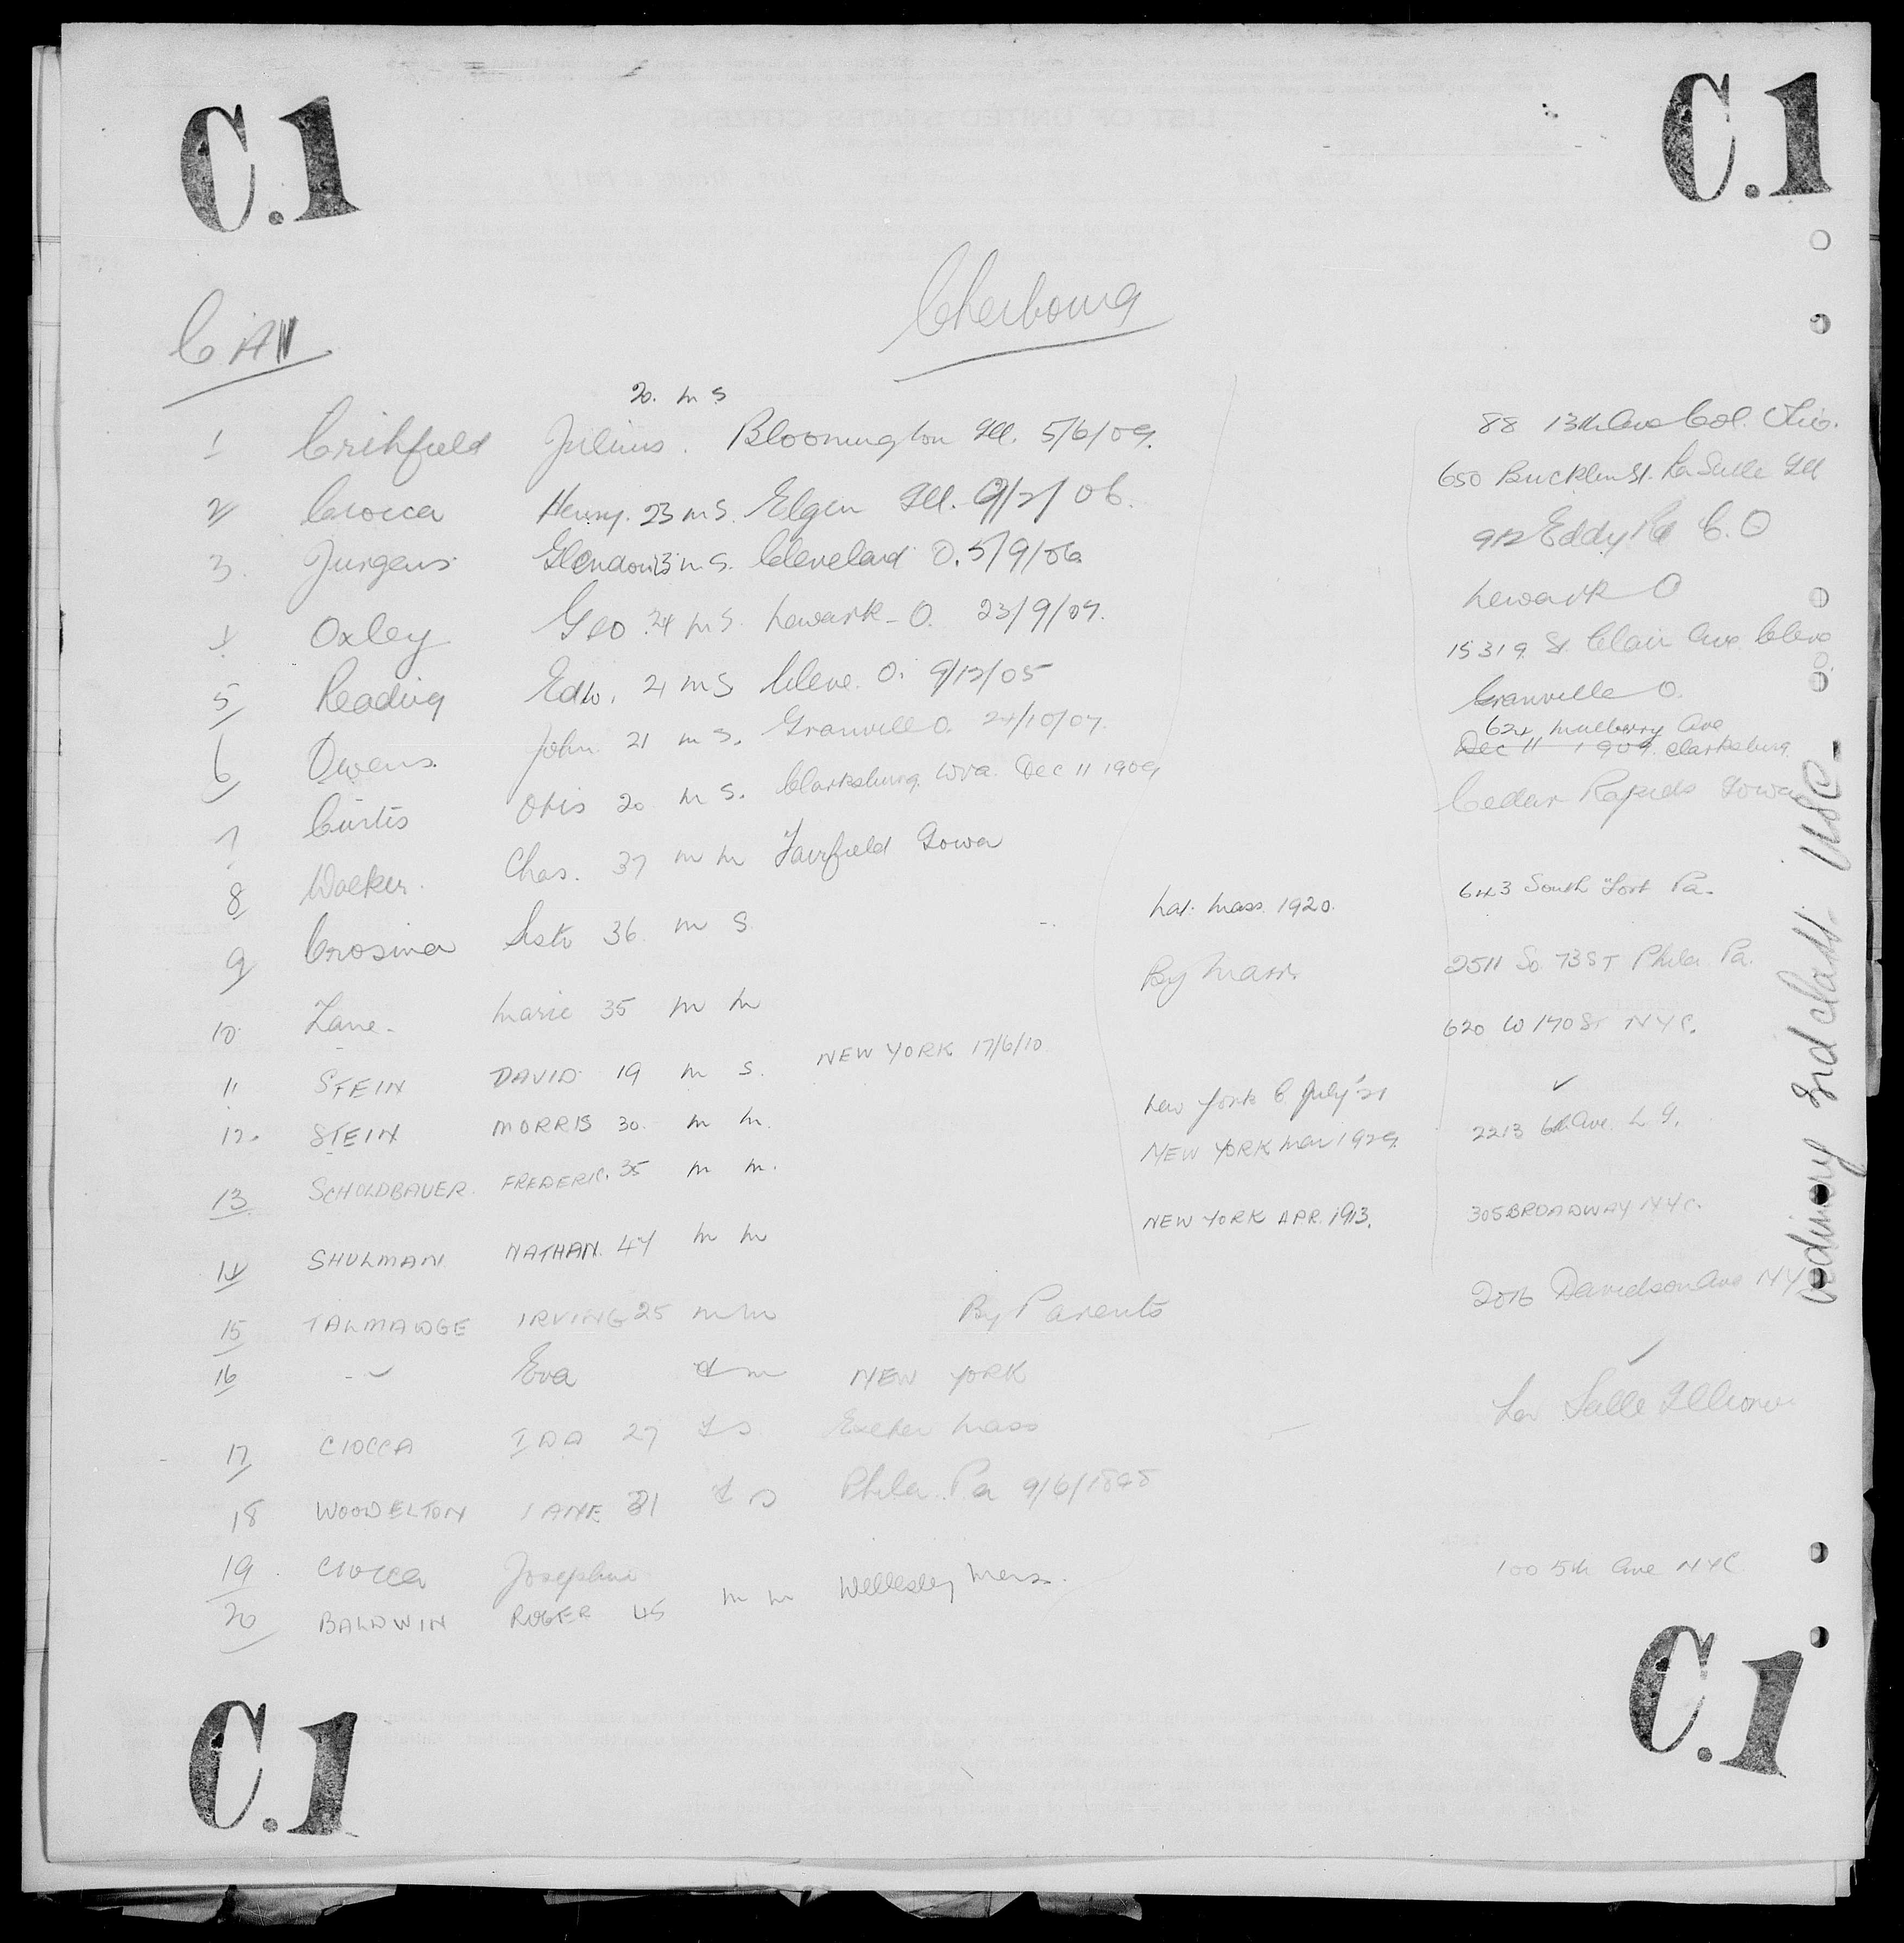 C.1 C.1
LIST OF UNITED STATES CITIZENS
Cherbourg
20. m S
1 Crihfield Julius. Bloomington Ill. 5/6/09. 88 13th Ave Col. Ohio.
2 Ciocca Henry. 23 m S. Elgin Ill. 9/2/06. 650 Bucklin St. La Salle Ill
3. Jurgens Glendon 23 m S. Cleveland O. 5/9/06 912 Eddy Rd C. O
4 Oxley Geo. 24 m S. Newark - O. 23/9/07. Newark O
5 Reading Edw. 21 m S Cleve. O. 9/12/05 15319 St. Clair Ave. Cleve O.
6 Owens John 21 m S. Granville O. 24/10/07. Granville O.
624 Mulberry Ave
7 Curtis Otis 20 m S. Clarksburg. W Va. Dec 11 1909 Dec 11 1909 Clarksburg
8 Walker. Chas. 37 m m Fairfield Iowa Cedar Rapids Iowa
9 Crosina 36 m S. Nat. Mass. 1920. 643 South Fort Pa.
10 Lane. Marie 35 m m By Marr. 2511 So. 73 ST Phila. Pa.
11 STEIN DAVID 19 m S. NEW YORK 17/6/10 620 W 170 St NYC.
12. STEIN MORRIS 30. m m. New York 6 July '21 ✓
13 SCHOLDBAUER FREDERIC. 35 m m. NEW YORK Mar 1929 2213 6th Ave. L. I.
14 SHULMAN NATHAN. 47 m m NEW YORK APR. 1913. 305 BROADWAY NYC.
15 TALMADGE IRVING 25 m m By Parents 2076 Davidson Ave NY
16 - ✓ Eva f m NEW YORK ✓
17 CIOCCA IDA 27 f S Exeter Mass La Salle Illinois
18 WOODELTON JANE 31 f S Phila. Pa 9/6/1898
19 Ciocca Josephine
20 BALDWIN ROGER 45 m m Wellesley Mass. 100 5th Ave NYC
3rd Class. USC -
C.1 C.1